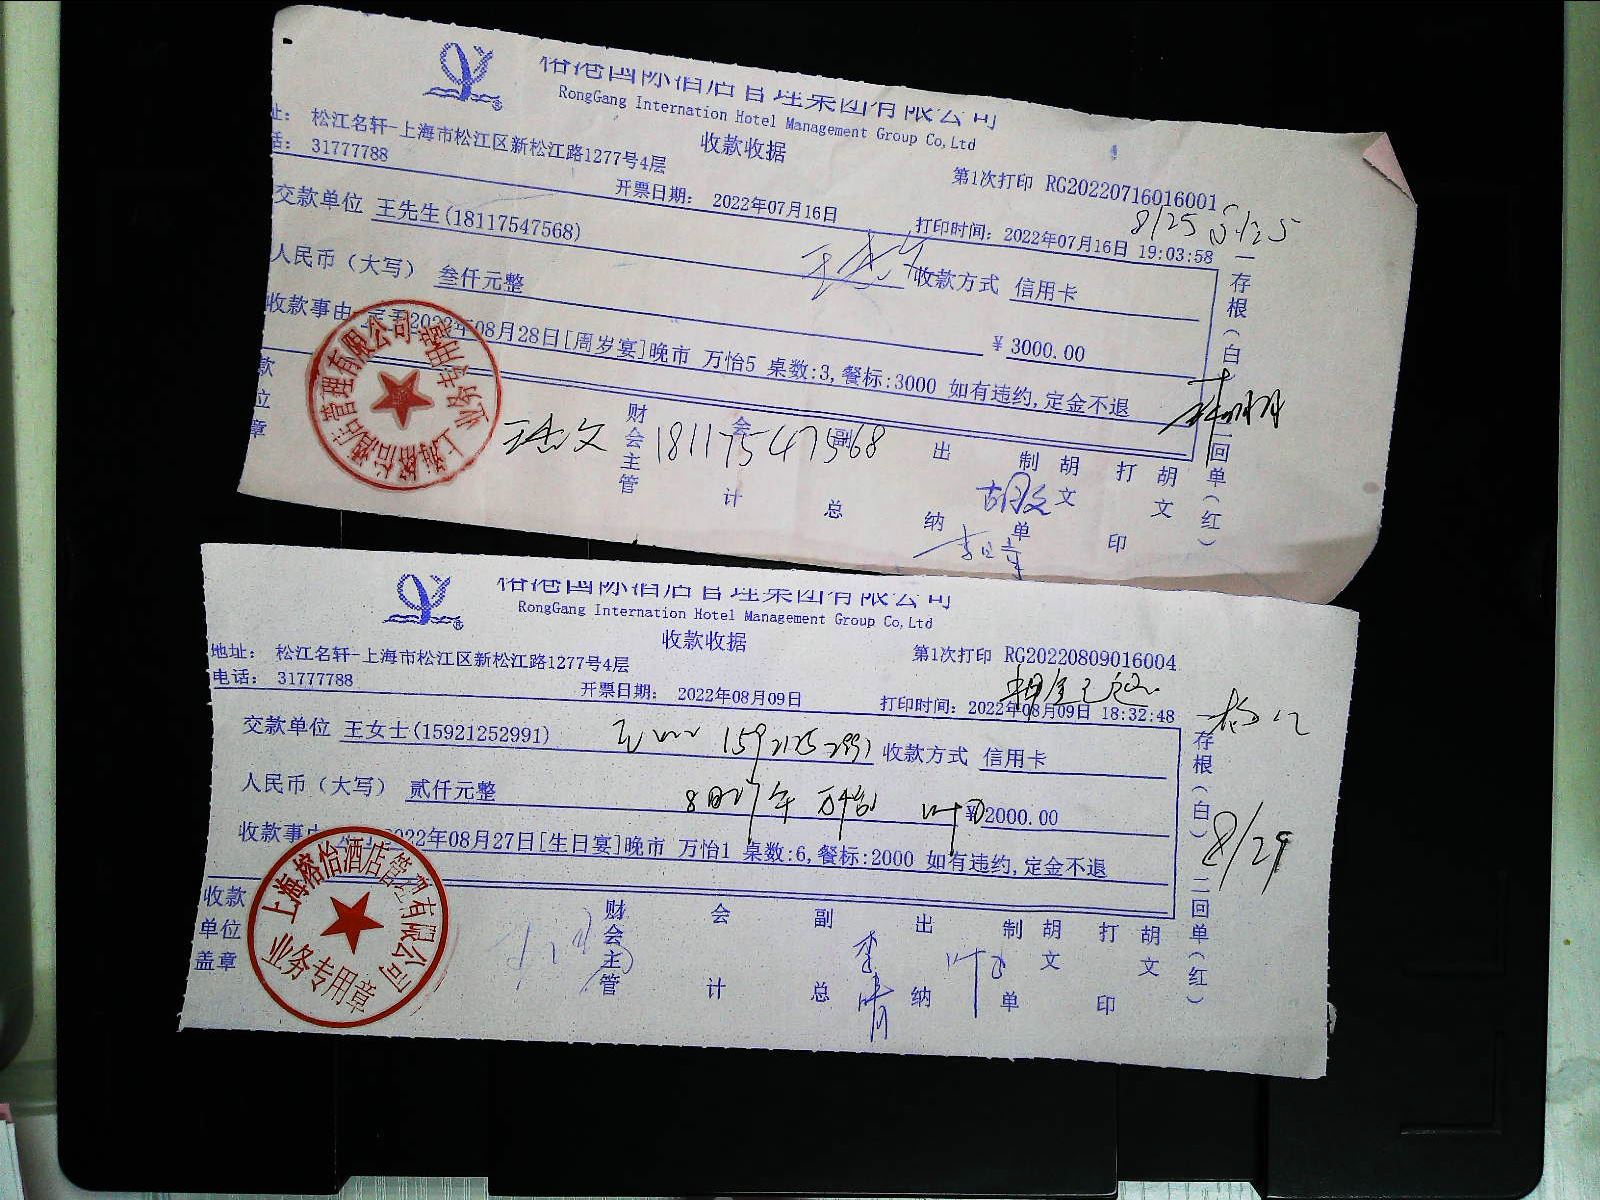 榕港国际酒店管理集团有限公司
RongGang Internation Hotel Management Group Co,Ltd
收款收据
址： 松江名轩-上海市松江区新松江路1277号4层
话： 31777788
第1次打印 RG20220716016001
8/25
开票日期： 2022年07月16日
打印时间：2022年07月16日 19:03:58
交款单位 王先生(18117547568)
收款方式 信用卡
人民币（大写） 叁仟元整
¥3000.00
收款事由 定于2022年08月28日[周岁宴]晚市 万怡5 桌数:3,餐标:3000 如有违约,定金不退
一存根（白）二回单（红）
款位章
上海榕怡酒店管理有限公司
业务专用章
18117547568
财会主管 会计 副总 出纳 制单 胡文 打印 胡文
胡文
榕港国际酒店管理集团有限公司
RongGang Internation Hotel Management Group Co,Ltd
收款收据
地址： 松江名轩-上海市松江区新松江路1277号4层
电话： 31777788
第1次打印 RG20220809016004
开票日期： 2022年08月09日
打印时间：2022年08月09日 18:32:48
交款单位 王女士(15921252991)
15921252991
收款方式 信用卡
人民币（大写） 贰仟元整
¥2000.00
收款事由 定于2022年08月27日[生日宴]晚市 万怡1 桌数:6,餐标:2000 如有违约,定金不退
一存根（白）二回单（红）
8/29
收款单位盖章
上海榕怡酒店管理有限公司
业务专用章
财会主管 会计 副总 出纳 制单 胡文 打印 胡文
李晴